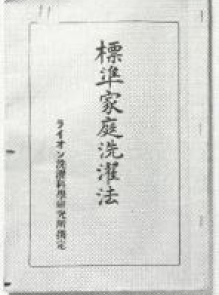 標準家庭洗濯法
ライオン洗濯科學研究所撰定